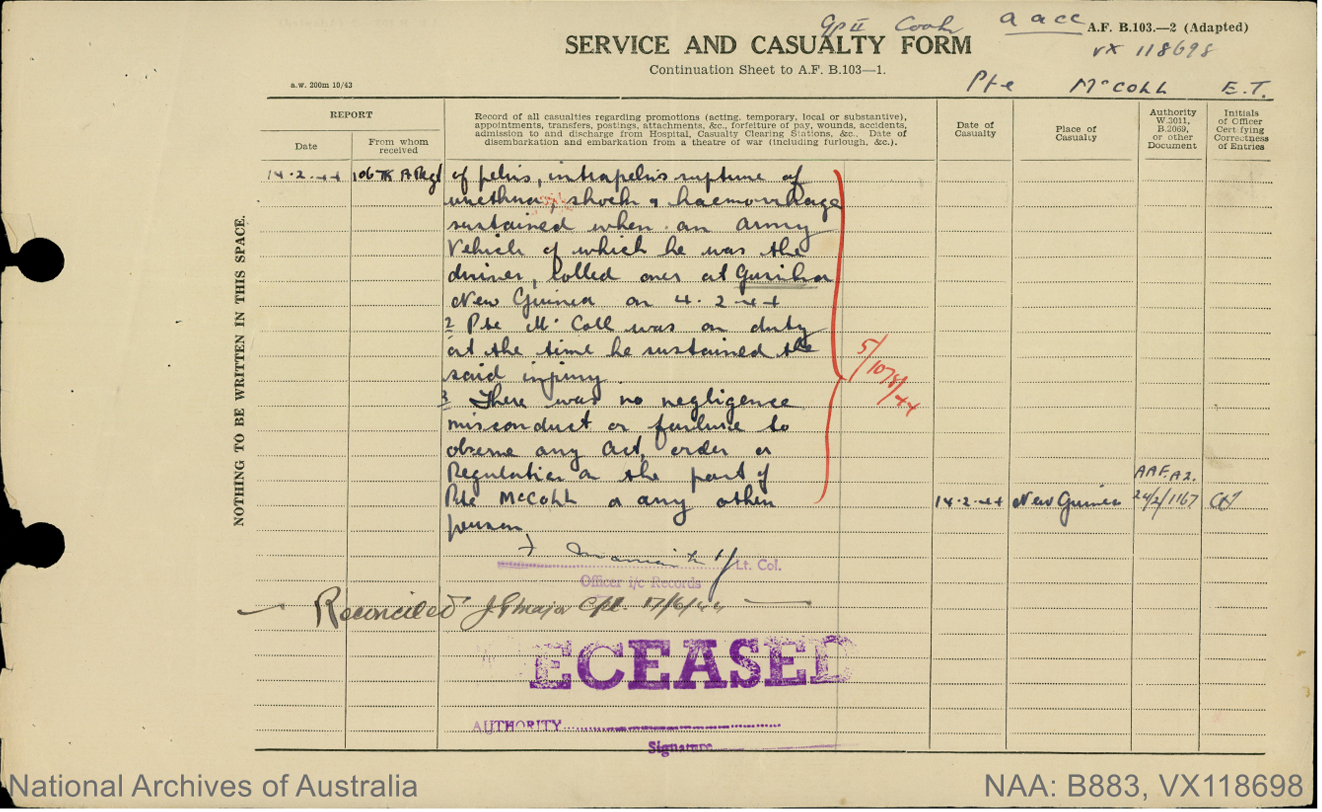 Gp II Cook A A C C A.F. B.103.—2 (Adapted)
SERVICE AND CASUALTY FORM VX 118698
Continuation Sheet to A.F. B.103—1.
a.w. 200m 10/43
Pte McCOLL E.T.
REPORT
Date
From whom received
Record of all casualties regarding promotions (acting, temporary, local or substantive),
appointments, transfers, postings, attachments, &c., forfeiture of pay, wounds, accidents,
admission to and discharge from Hospital, Casualty Clearing Stations, &c., Date of
disembarkation and embarkation from a theatre of war (including furlough, &c.).
Date of Casualty
Place of Casualty
Authority W.3011, B.2069, or other Document
Initials of Officer Certifying Correctness of Entries
NOTHING TO BE WRITTEN IN THIS SPACE.
14.2.44 106 TK A Regt of pelvis, intrapelvis rupture of
urethra, shock & haemorrhage
sustained when an Army
Vehicle of which he was the
driver, rolled over at
New Guinea on 4.2.44
2 Pte McColl was on duty
at the time he sustained the
said injury
5/1078/44
3 There was no negligence
misconduct or failure to
observe any Act, order or
Regulation on the part of
AAF.A2.
Pte McCOLL or any other 14.2.44 New Guinea 24/2/1167
person
Lt. Col.
Officer i/c Records
Reconciled Cpl. 17/6/44
ECEASED
AUTHORITY
Signature
National Archives of Australia NAA: B883, VX118698